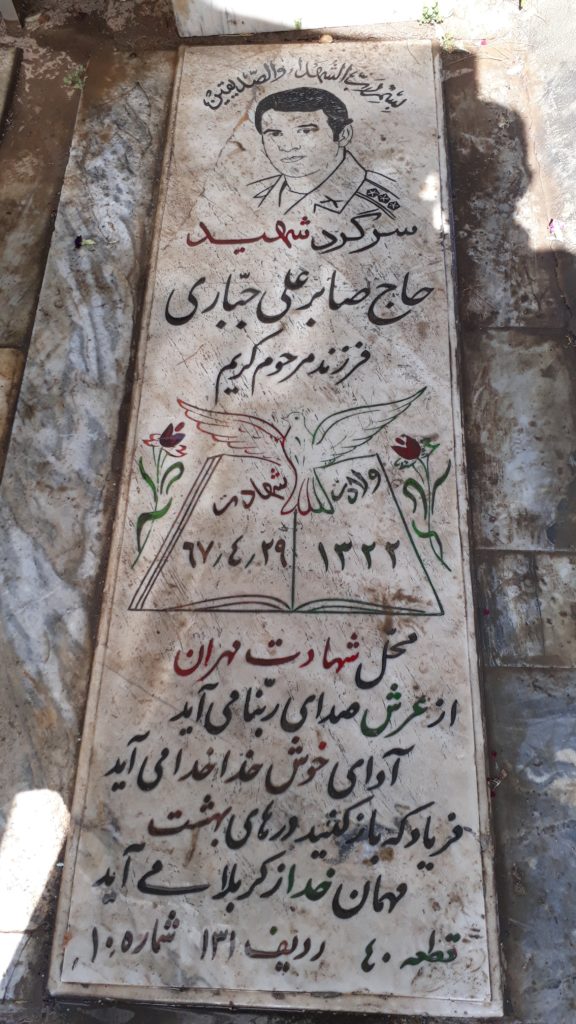 بسم رب الشهداء والصدیقین
سرگرد شهید
حاج صابر علی جبّاری
فرزند مرحوم کریم
ولادت شهادت
۱۳۲۲ ۶۷٫۴٫۲۹
محل شهادت مهران
از عرش صدای ربّنا می آید
آوای خوش خدا خدا می آید
فریاد که باز کنید درهای بهشت
مهمان خدا از کربلا می آید
قطعه ۴۰ ردیف ۱۳۱ شماره ۱۰